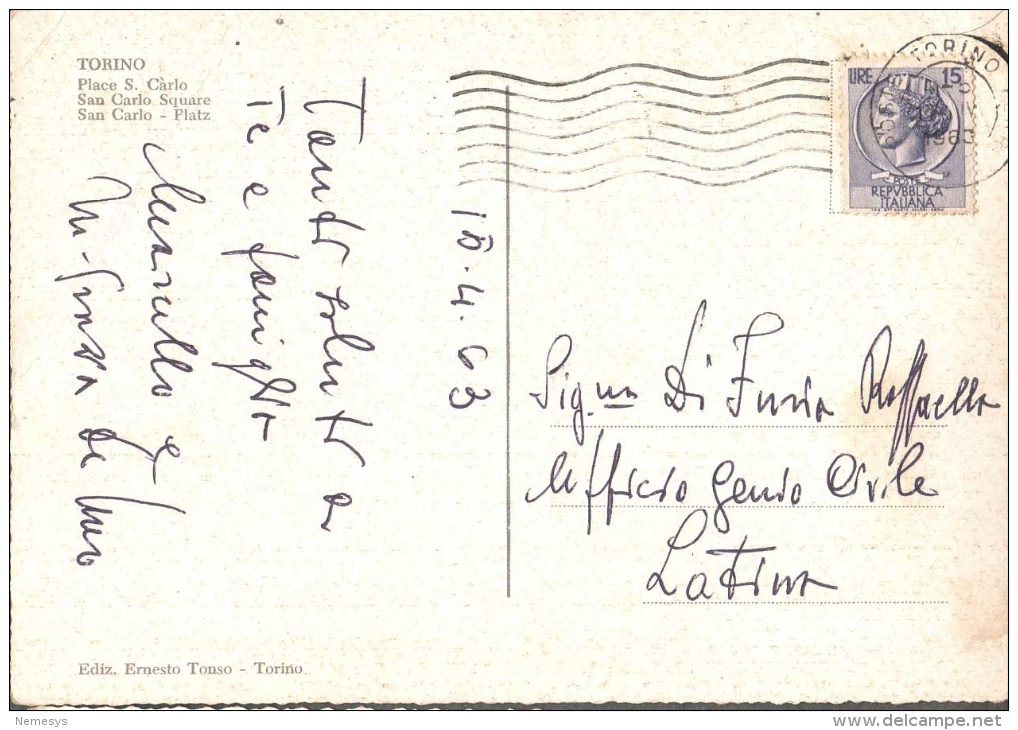 TORINO
Place S. Càrlo
San Carlo Square
San Carlo - Platz
Tanti saluti a
Te e famiglia
Marcello e
M. Grazia De
18.4.63
TORINO
1963
LIRE 15
POSTE
REPVBBLICA
ITALIANA
Sig.na Di Furia Raffaella
Ufficio Genio Civile
Latina
Ediz. Ernesto Tonso - Torino
Nemesys
delcampe.net